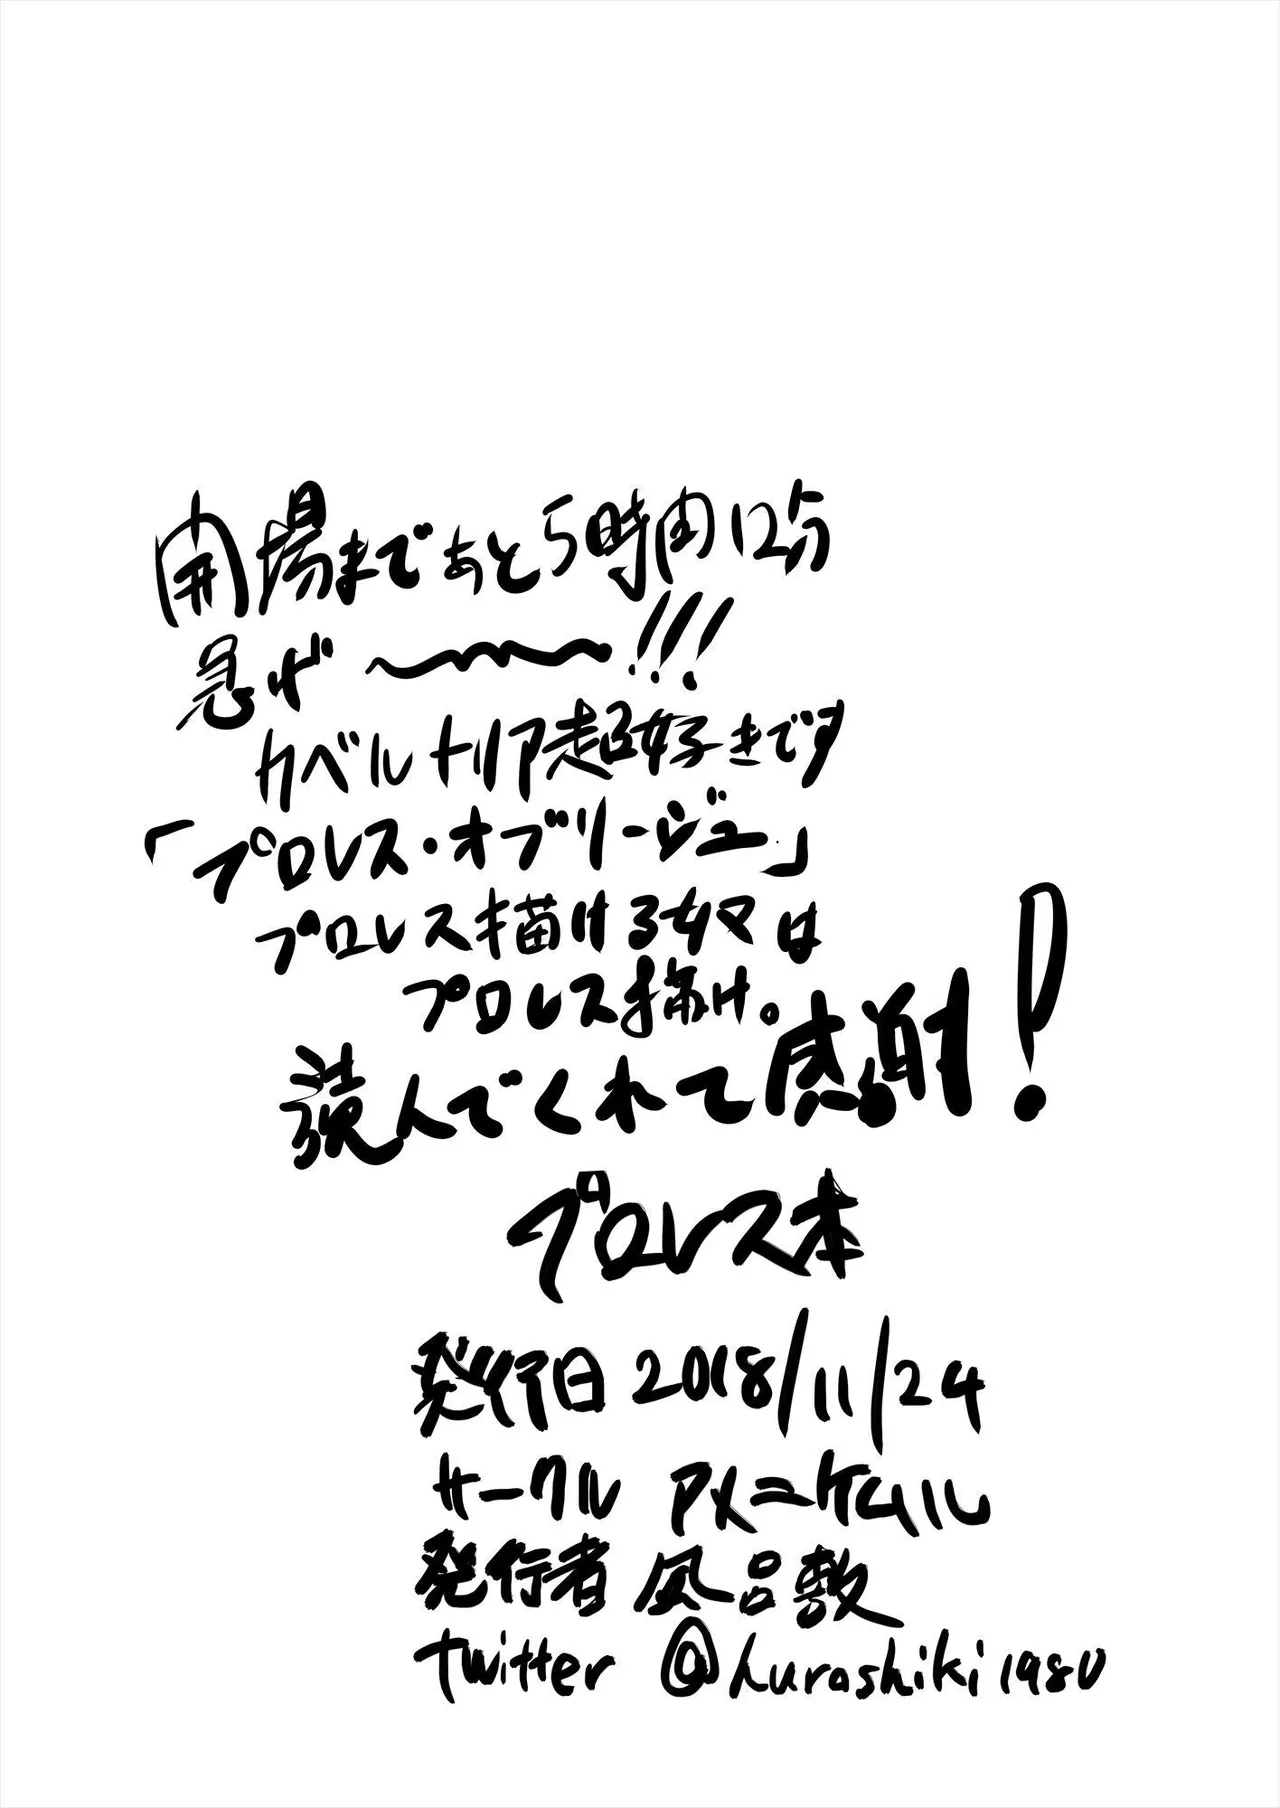 開場まであと5時間12分
急げ〜〜!!!
カベルナリア超好きです
「プロレス・オブリージュ」
プロレス描ける奴は
プロレス描け。
読んでくれて感謝!
プロレス本
発行日 2018/11/24
サークル アメニケムル
発行者 風呂敷
twitter @huroshiki1980